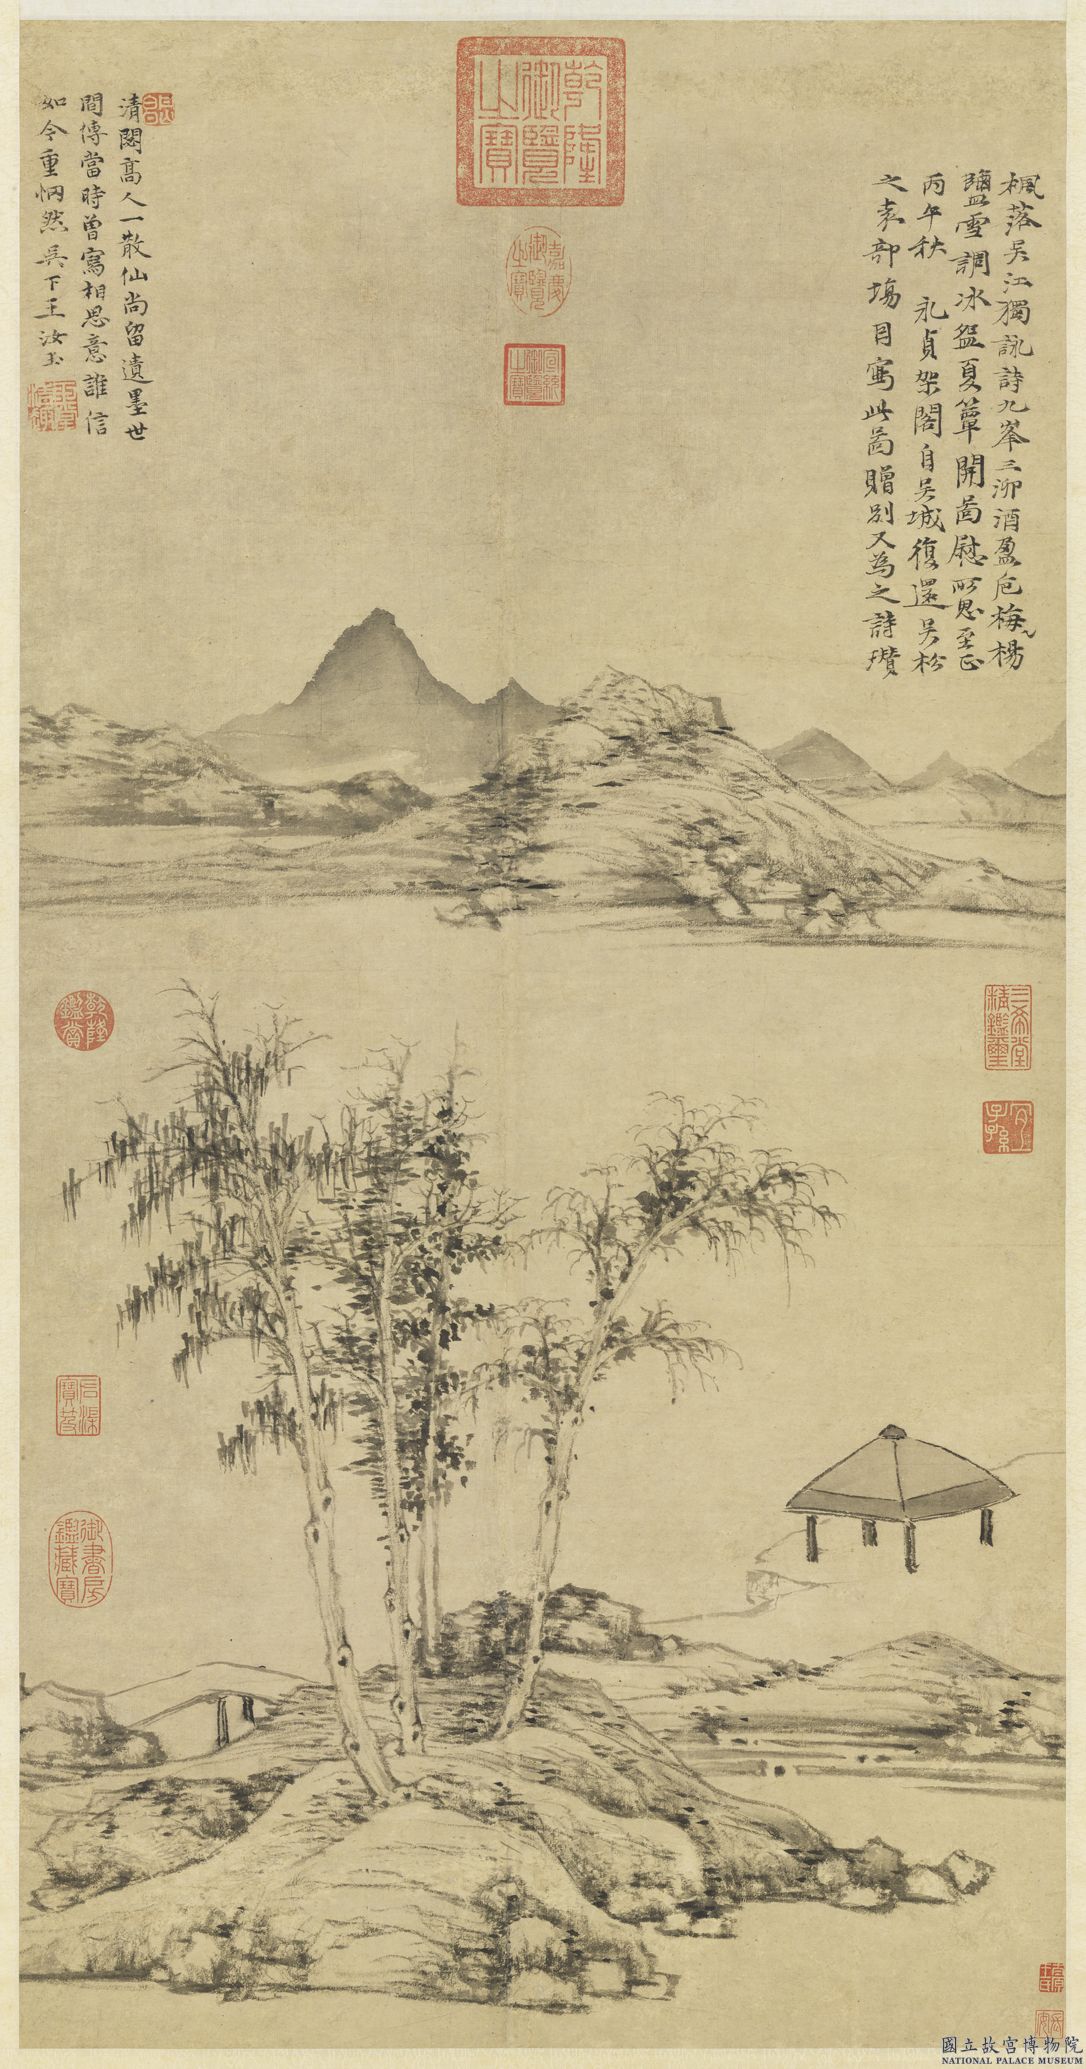 楓落吳江獨詠詩九峯三泖酒盈卮梅楊
鹽雪調冰盌夏簟開啚慰所思至正
丙午秋 永貞架閣自吳城復還吳松
之袁部場因寫此啚贈別又為之詩瓚
清閟高人一散仙尚留遺墨世
間傳當時曾寫相思意誰信
如今重惘然吳下王汝玉
乾隆御覽之寶
嘉慶御覽之寶
宣統御覽之寶
乾隆鑑賞
三希堂精鑑璽
宜子孫
石渠寶笈
御書房鑑藏寶
國立故宮博物院
NATIONAL PALACE MUSEUM